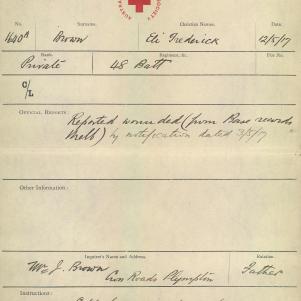 SOCIETY
No. Surname. Christian Names. Date.
1640A Brown Eli Frederick 12/5/17
Rank. Regiment, &c. File No.
Private 48 Batt
C/L
OFFICIAL REPORTS:
Reported wounded (from Base records
Melb) by notification dated 3/5/17
Other Information:
Inquirer's Name and Address. Relation.
Mr J. Brown Father
Cross Roads Plympton
Instructions: